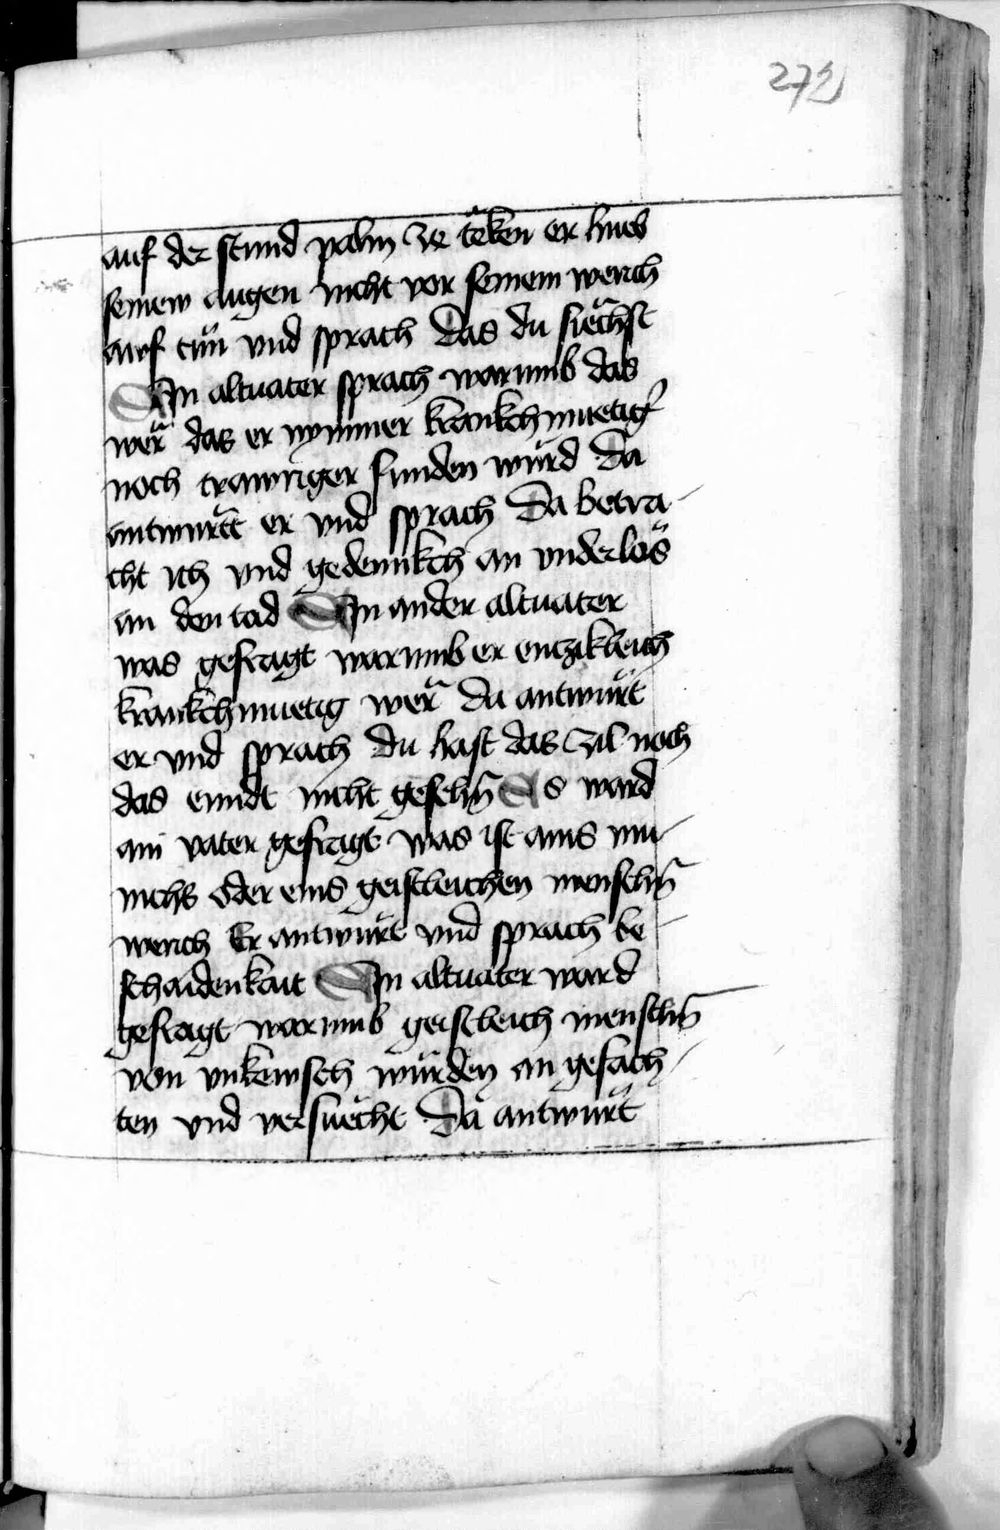 272
auf der stund palm ze teken er hueb
seinew augen nicht vor seinem werich
auf tun vnd sprach Das du siechst
Ain altuater sprach warumb das
wer das er nymmer krankchmuetig
noch trawriger funden wurd Da
antwurtt er vnd sprach Da betra-
cht ich vnd gedennkch an vnderlas
an den tod Ain ander altuater
was gefragt warumb er enczikleich
krankchmuetig wer Da antwurt
er vnd sprach Du hast das zil noch
das enndt nicht gesehn̄ Es ward
ain vater gefragt was ist ains mu-
nichs oder eins geistleichen menschn̄
werich Er antwurt vnd sprach be-
schaidenkait Ain altuater ward
gefragt warumb geistleich menschn̄
von vnkewsch wurden an gefach-
ten vnd versuecht Da antwurt